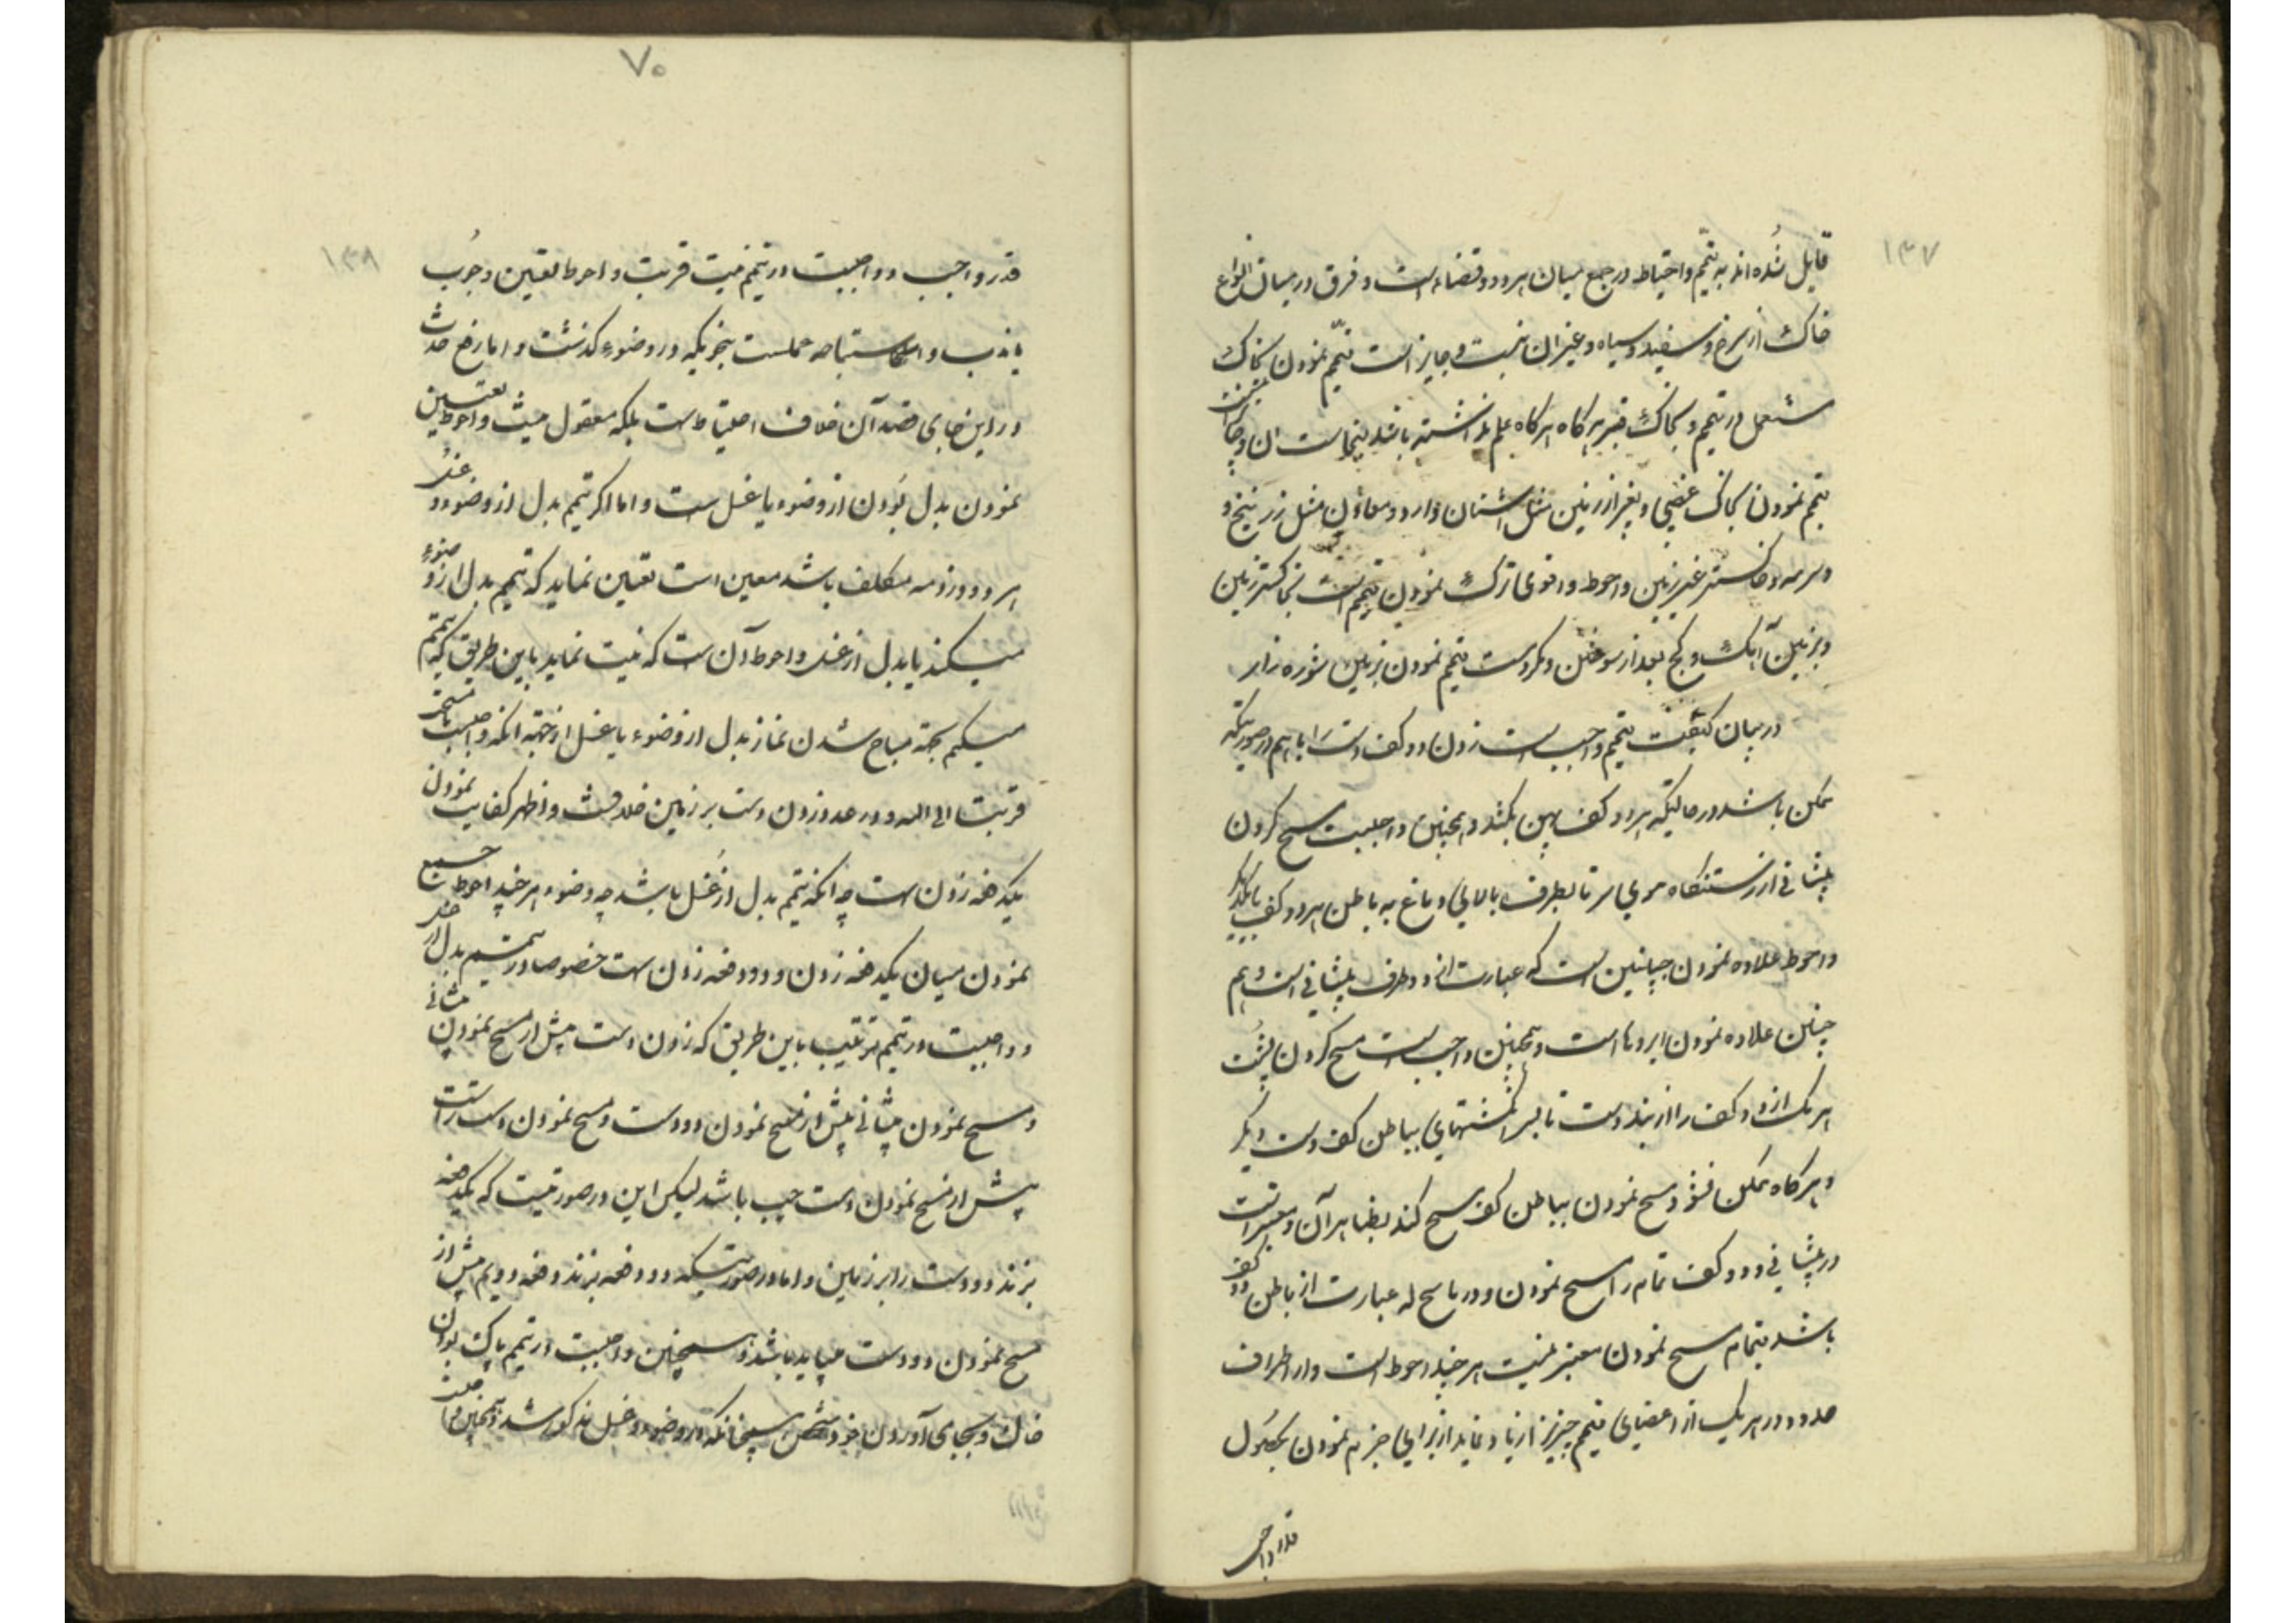 ۱۳۷
قایل شده‌اند به تیمّم و احتیاط در جمع میان هر دو و قضاء است و فرق در میان انواع
خاک از سرخ و سفید و سیاه و غیر ان نیست و جایز است تیمّم نمودن بخاک
مستعمل در تیمم و بخاک قبر هر کاه هر کاه علم نداشته باشد بنجاست ان و جایز نیست
تیمم نمودن بخاک غصبی و بغیر از زمین مثل اشنان و ارد و معادن مثل زرنیخ و
و سرمه و خاکستر غیر زمین و احوط و اقوی ترک نمودن تیمم است بخاکستر زمین
و بزمین آهک و کج بعد از سوختن و مکروهست تیمم نمودن بزمین شوره زار
در بیان کیفیت تیمم واجب است زدن دو کف دست را با هم در صورتیکه
ممکن باشد در حالتیکه هر دو کف پهن باشد و همچنین واجبست مسح کردن
پیشانی از رستنکاه موی سر تا بطرف بالای دماغ به باطن هر دو کف با یکدیکر
و احوط علاوه نمودن جبینین است که عبارت از دو طرف پیشانی است و هم
چنین علاوه نمودن ابروها است و همچنین واجب است مسح کردن پشت
هر یک از دو کف را از بند دست تا بسر انکشتهای بباطن کف دست دیکر
و هر کاه ممکن نشود مسح نمودن بباطن کف مسح کند بظاهر آن و معتبر است
در پیشانی و دو کف تمام را مسح نمودن و در ماسح که عبارت از باطن دو کف
باشد بتمام مسح نمودن معتبر نیست هر چند احوط است و از اطراف
حدود در هر یک از اعضای تیمم چیزی زیاد نماید از برای جزم نمودن بحصول
قدر واجب
۷۰
۱۳۸
قدر واجب و واجبست در تیمم نیت قربت و احوط تعین وجوب
یا ندب و استباحه عملست بنحویکه در وضوء کذشت و اما رفع حدث
در این جای قصد آن خلاف احتیاط است بلکه معقول نیست و احوط تعیین
نمودن بدل بودن از وضوء یا غسل است و اما اکر تیمم بدل از وضوء و غسل
هر دو در ذمه مکلف باشد معین است تعیین نماید که تیمم بدل از وضوء
میکند یا بدل از غسل و احوط آن است که نیت نماید باین طریق که تیمم
میکنم بجهة مباح شدن نماز بدل از وضوء یا غسل از جهة انکه واجبست یا مستحب
قربت الی الله و در عدد زدن دست بر زمین خلافست و اظهر کفایت نمودن
یکدفعه زدن است چه انکه تیمم بدل از غسل باشد چه وضوء هر چند احوط جمع
نمودن میان یکدفعه زدن و دو دفعه زدن است خصوصا در تیمم بدل از غسل
و واجبست در تیمم ترتیب باین طریق که زدن دست پیش از مسح نمودن پیشانی
و مسح نمودن پیشانی پیش از مسح نمودن دو دست و مسح نمودن دست راست
پیش از مسح نمودن دست چپ باشد لیکن این در صورتیست که یکدفعه
بزند دو دست را بر زمین و اما در صورتیکه دو دفعه بزند دفعه دویم پیش از
مسح نمودن دو دست میباید باشد و همچنین واجبست در تیمم پاک بودن
خاک و بجای آوردن خود شخص همچنانکه در وضوء و غسل مذکور شد و همچنین